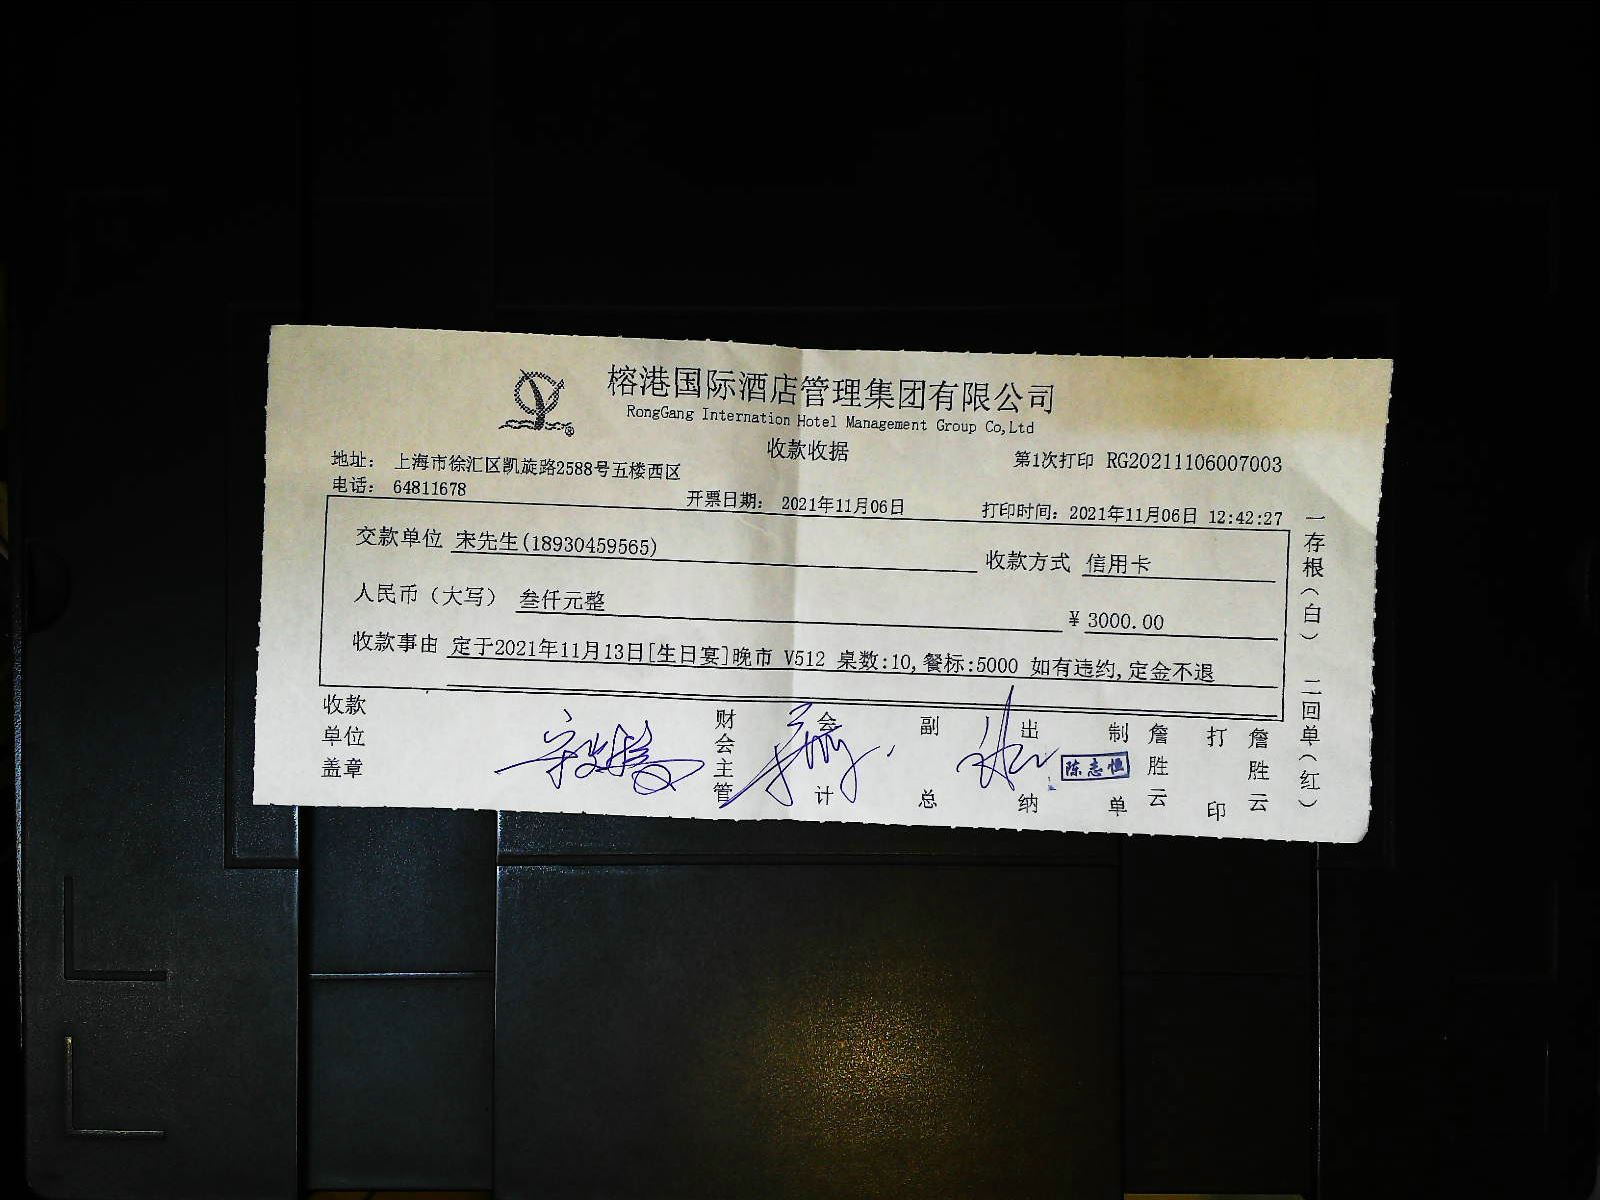 榕港国际酒店管理集团有限公司
RongGang Internation Hotel Management Group Co,Ltd
收款收据
地址： 上海市徐汇区凯旋路2588号五楼西区
第1次打印 RG20211106007003
电话： 64811678
开票日期： 2021年11月06日
打印时间：2021年11月06日 12:42:27
交款单位 宋先生(18930459565)
收款方式 信用卡
人民币（大写） 叁仟元整
¥ 3000.00
收款事由 定于2021年11月13日[生日宴]晚市 V512 桌数:10,餐标:5000 如有违约,定金不退
收款单位盖章
财会主管
会计
副总
出纳
陈志恒
制单
詹胜云
打印
詹胜云
一存根（白） 二回单（红）